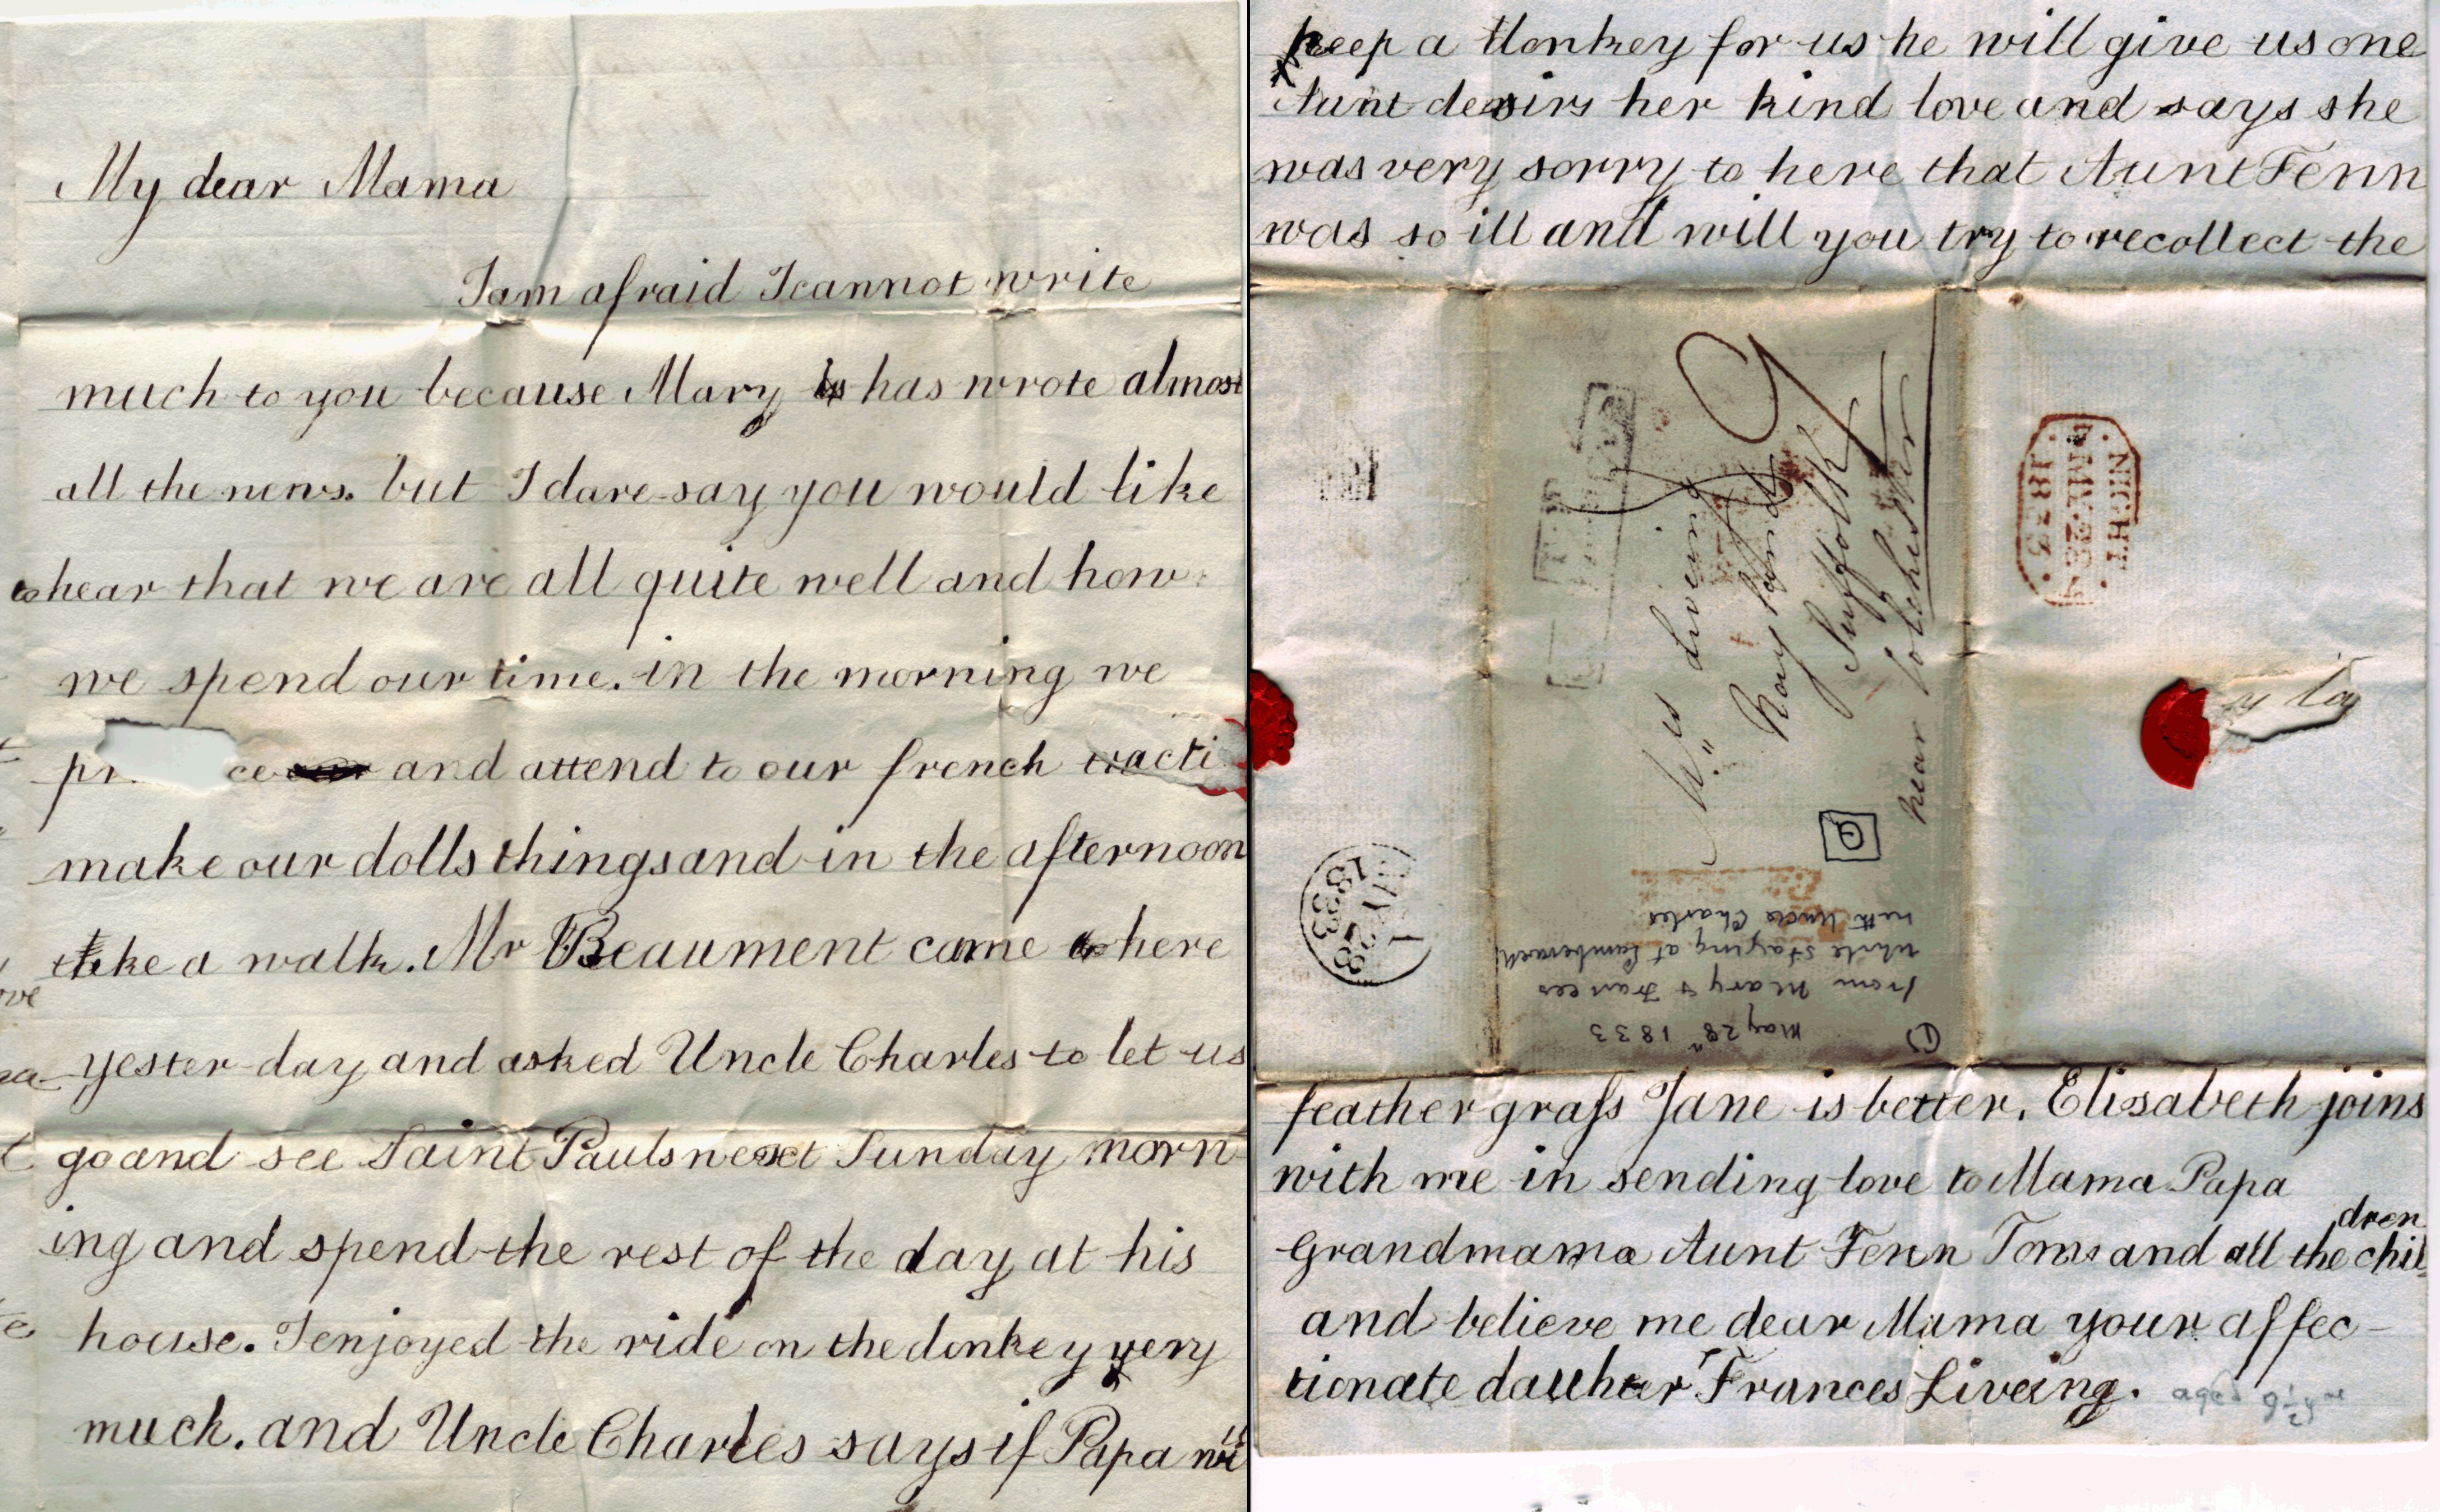 My dear Mama
I am afraid I cannot write
much to you because Mary has wrote almost
all the news. but I dare say you would like
to hear that we are all quite well and how
we spend our time. in the morning we
pr ce and attend to our french
make our dolls things and in the afternoon
take a walk. Mr Beaument came here
yester-day and asked Uncle Charles to let us
go and see Saint Pauls next Sunday morn
ing and spend the rest of the day at his
house. I enjoyed the ride on the donkey very
much. and Uncle Charles says if Papa will
keep a donkey for us he will give us one
Aunt desirs her kind love and says she
was very sorry to here that Aunt Fenn
was so ill and will you try to recollect the
Mrs Liveing
Nayland
Suffolk
near Colchester
9
NIGHT
MY.28
1833
MY 28
1833
① May 28th 1833
from Mary & Frances
while staying at Camberwell
with Uncle Charles
feather grass Jane is better. Elisabeth joins
with me in sending love to Mama Papa
Grandmama Aunt Fenn Toms and all the chil
dren
and believe me dear Mama your affec-
tionate dauhter Frances Liveing. aged 9½ yrs